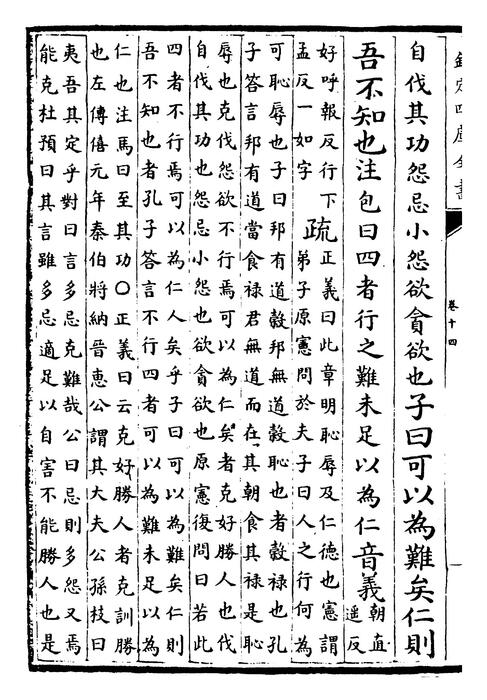 欽定四庫全書
卷十四
一
自伐其功怨忌小怨欲貪欲也子曰可以為難矣仁則
吾不知也注包曰四者行之難未足以為仁音義朝直
遥反
好呼報反行下
孟反一如字
疏
正義曰此章明恥辱及仁德也憲謂
弟子原憲問於夫子曰人之行何為
可恥辱也子曰邦有道穀邦無道穀恥也者穀禄也孔
子答言邦有道當食禄君無道而在其朝食其禄是恥
辱也克伐怨欲不行焉可以為仁矣者克好勝人也伐
自伐其功也怨忌小怨也欲貪欲也原憲復問曰若此
四者不行焉可以為仁人矣乎子曰可以為難矣仁則
吾不知也者孔子答言不行四者可以為難未足以為
仁也注馬曰至其功〇正義曰云克好勝人者克訓勝
也左傳僖元年秦伯將納晉惠公謂其大夫公孫枝曰
夷吾其定乎對曰言多忌克難哉公曰忌則多怨又焉
能克杜預曰其言雖多忌適足以自害不能勝人也是